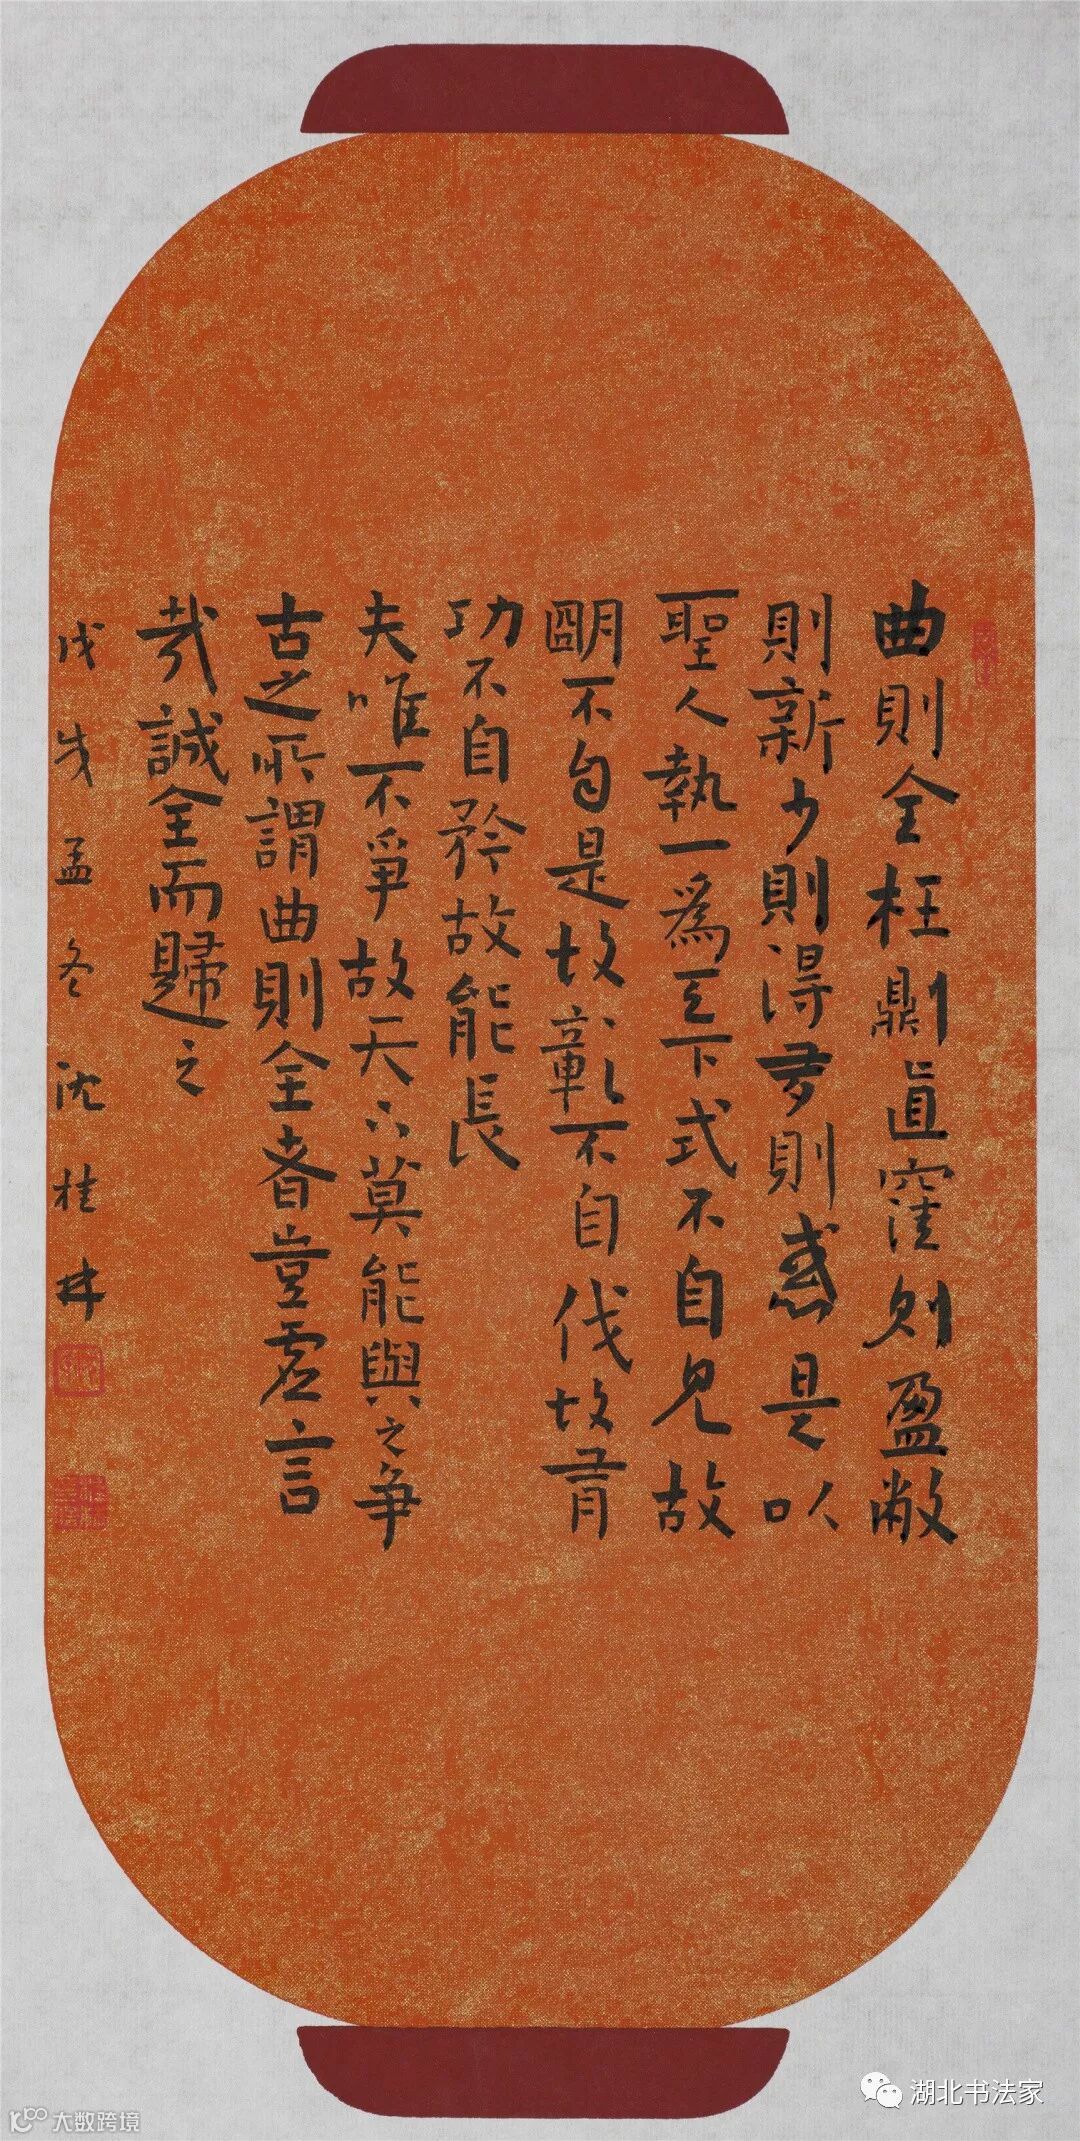 曲則全枉則直窪则盈敝
則新少則得多則惑是以
聖人執一爲天下式不自見故
朙不自是故彰不自伐故有
功不自矜故能長
夫唯不爭故天下莫能與之争
古之所謂曲則全者豈虛言
哉誠全而歸之
戊戌孟冬沈桂
湖北书法家
大数跨境